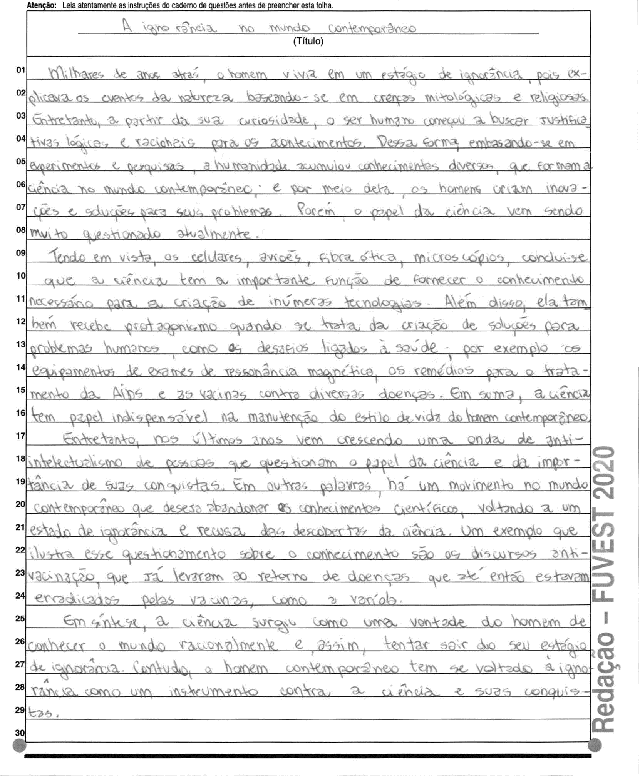 Atenção: Leia atentamente as instruções do caderno de questões antes de preencher esta folha.
A ignorância no mundo contemporâneo
(Título)
01 Milhares de anos atrás, o homem vivia em um estágio de ignorância, pois ex-
02 plicava os eventos da natureza baseando-se em crenças mitológicas e religiosas.
03 Entretanto, a partir da sua curiosidade, o ser humano começou a buscar justifica
04 tivas lógicas e racionais para os acontecimentos. Dessa forma, embasando-se em
05 experimentos e pesquisas, a humanidade acumulou conhecimentos diversos, que formam a
06 ciência no mundo contemporâneo; e por meio dela, os homens criam inova-
07 ções e soluções para seus problemas. Porém, o papel da ciência vem sendo
08 muito questionado atualmente.
09 Tendo em vista, os celulares, aviões, fibra ótica, microscópios, conclui-se
10 que a ciência tem a importante função de fornecer o conhecimento
11 necessário para a criação de inúmeras tecnologias. Além disso, ela tam
12 bém recebe protagonismo quando se trata da criação de soluções para
13 problemas humanos, como os desafios ligados à saúde - por exemplo os
14 equipamentos de exames de ressonância magnética, os remédios para o trata-
15 mento da Aids e as vacinas contra diversas doenças. Em suma, a ciência
16 tem papel indispensável na manutenção do estilo de vida do homem contemporâneo.
17 Entretanto, nos últimos anos vem crescendo uma onda de anti-
18 intelectualismo de pessoas que questionam o papel da ciência e da impor-
19 tância de suas conquistas. Em outras palavras, há um movimento no mundo
20 contemporâneo que deseja abandonar os conhecimentos científicos, voltando a um
21 estado de ignorância e recusa das descobertas da ciência. Um exemplo que
22 ilustra esse questionamento sobre o conhecimento são os discursos anti-
23 vacinação, que já levaram ao retorno de doenças que até então estavam
24 erradicados pelas vacinas, como a varíola.
25 Em síntese, a ciência surgiu como uma vontade do homem de
26 conhecer o mundo racionalmente e, assim, tentar sair do seu estágio
27 de ignorância. Contudo, o homem contemporâneo tem se voltado à igno
28 rância como um instrumento contra a ciência e suas conquis-
29 tas.
30
Redação – FUVEST 2020